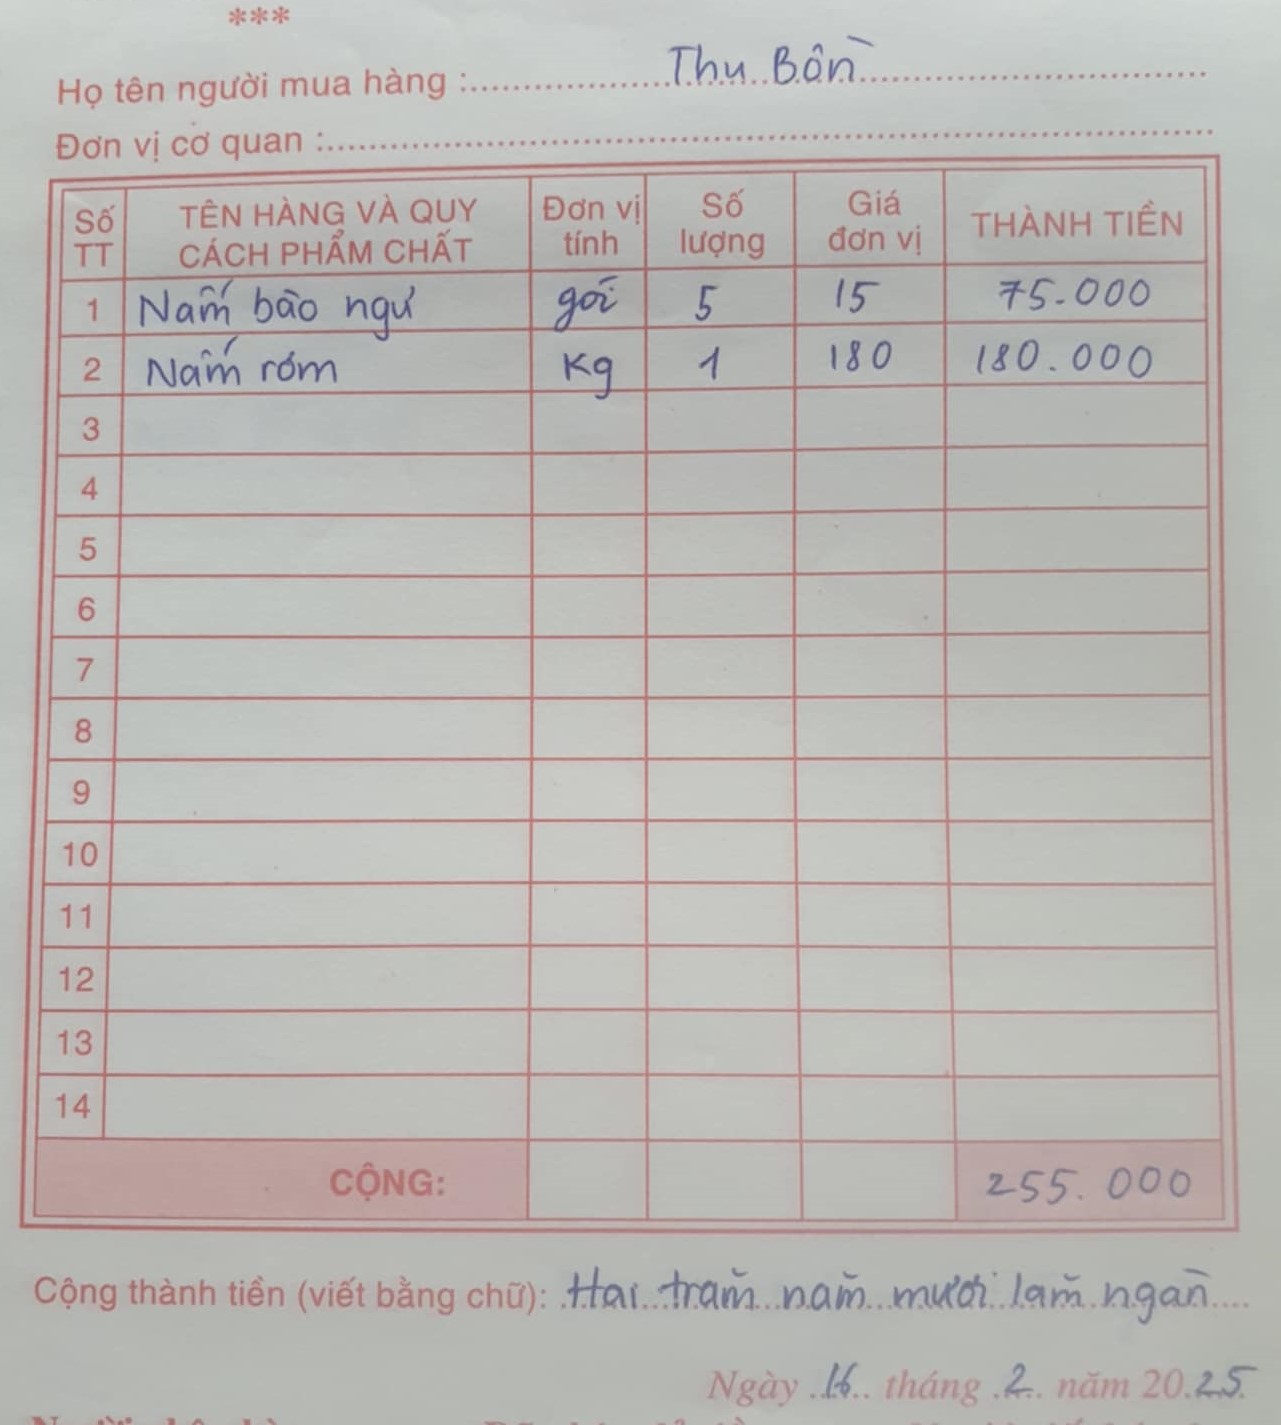 ***
Họ tên người mua hàng : Thu Bồn
Đơn vị cơ quan :
Số TT TÊN HÀNG VÀ QUY CÁCH PHẨM CHẤT Đơn vị tính Số lượng Giá đơn vị THÀNH TIỀN
1 Nấm bào ngư gói 5 15 75.000
2 Nấm rơm Kg 1 180 180.000
3
4
5
6
7
8
9
10
11
12
13
14
CỘNG: 255.000
Cộng thành tiền (viết bằng chữ): Hai trăm năm mươi lăm ngàn
Ngày 16 tháng 2 năm 2025